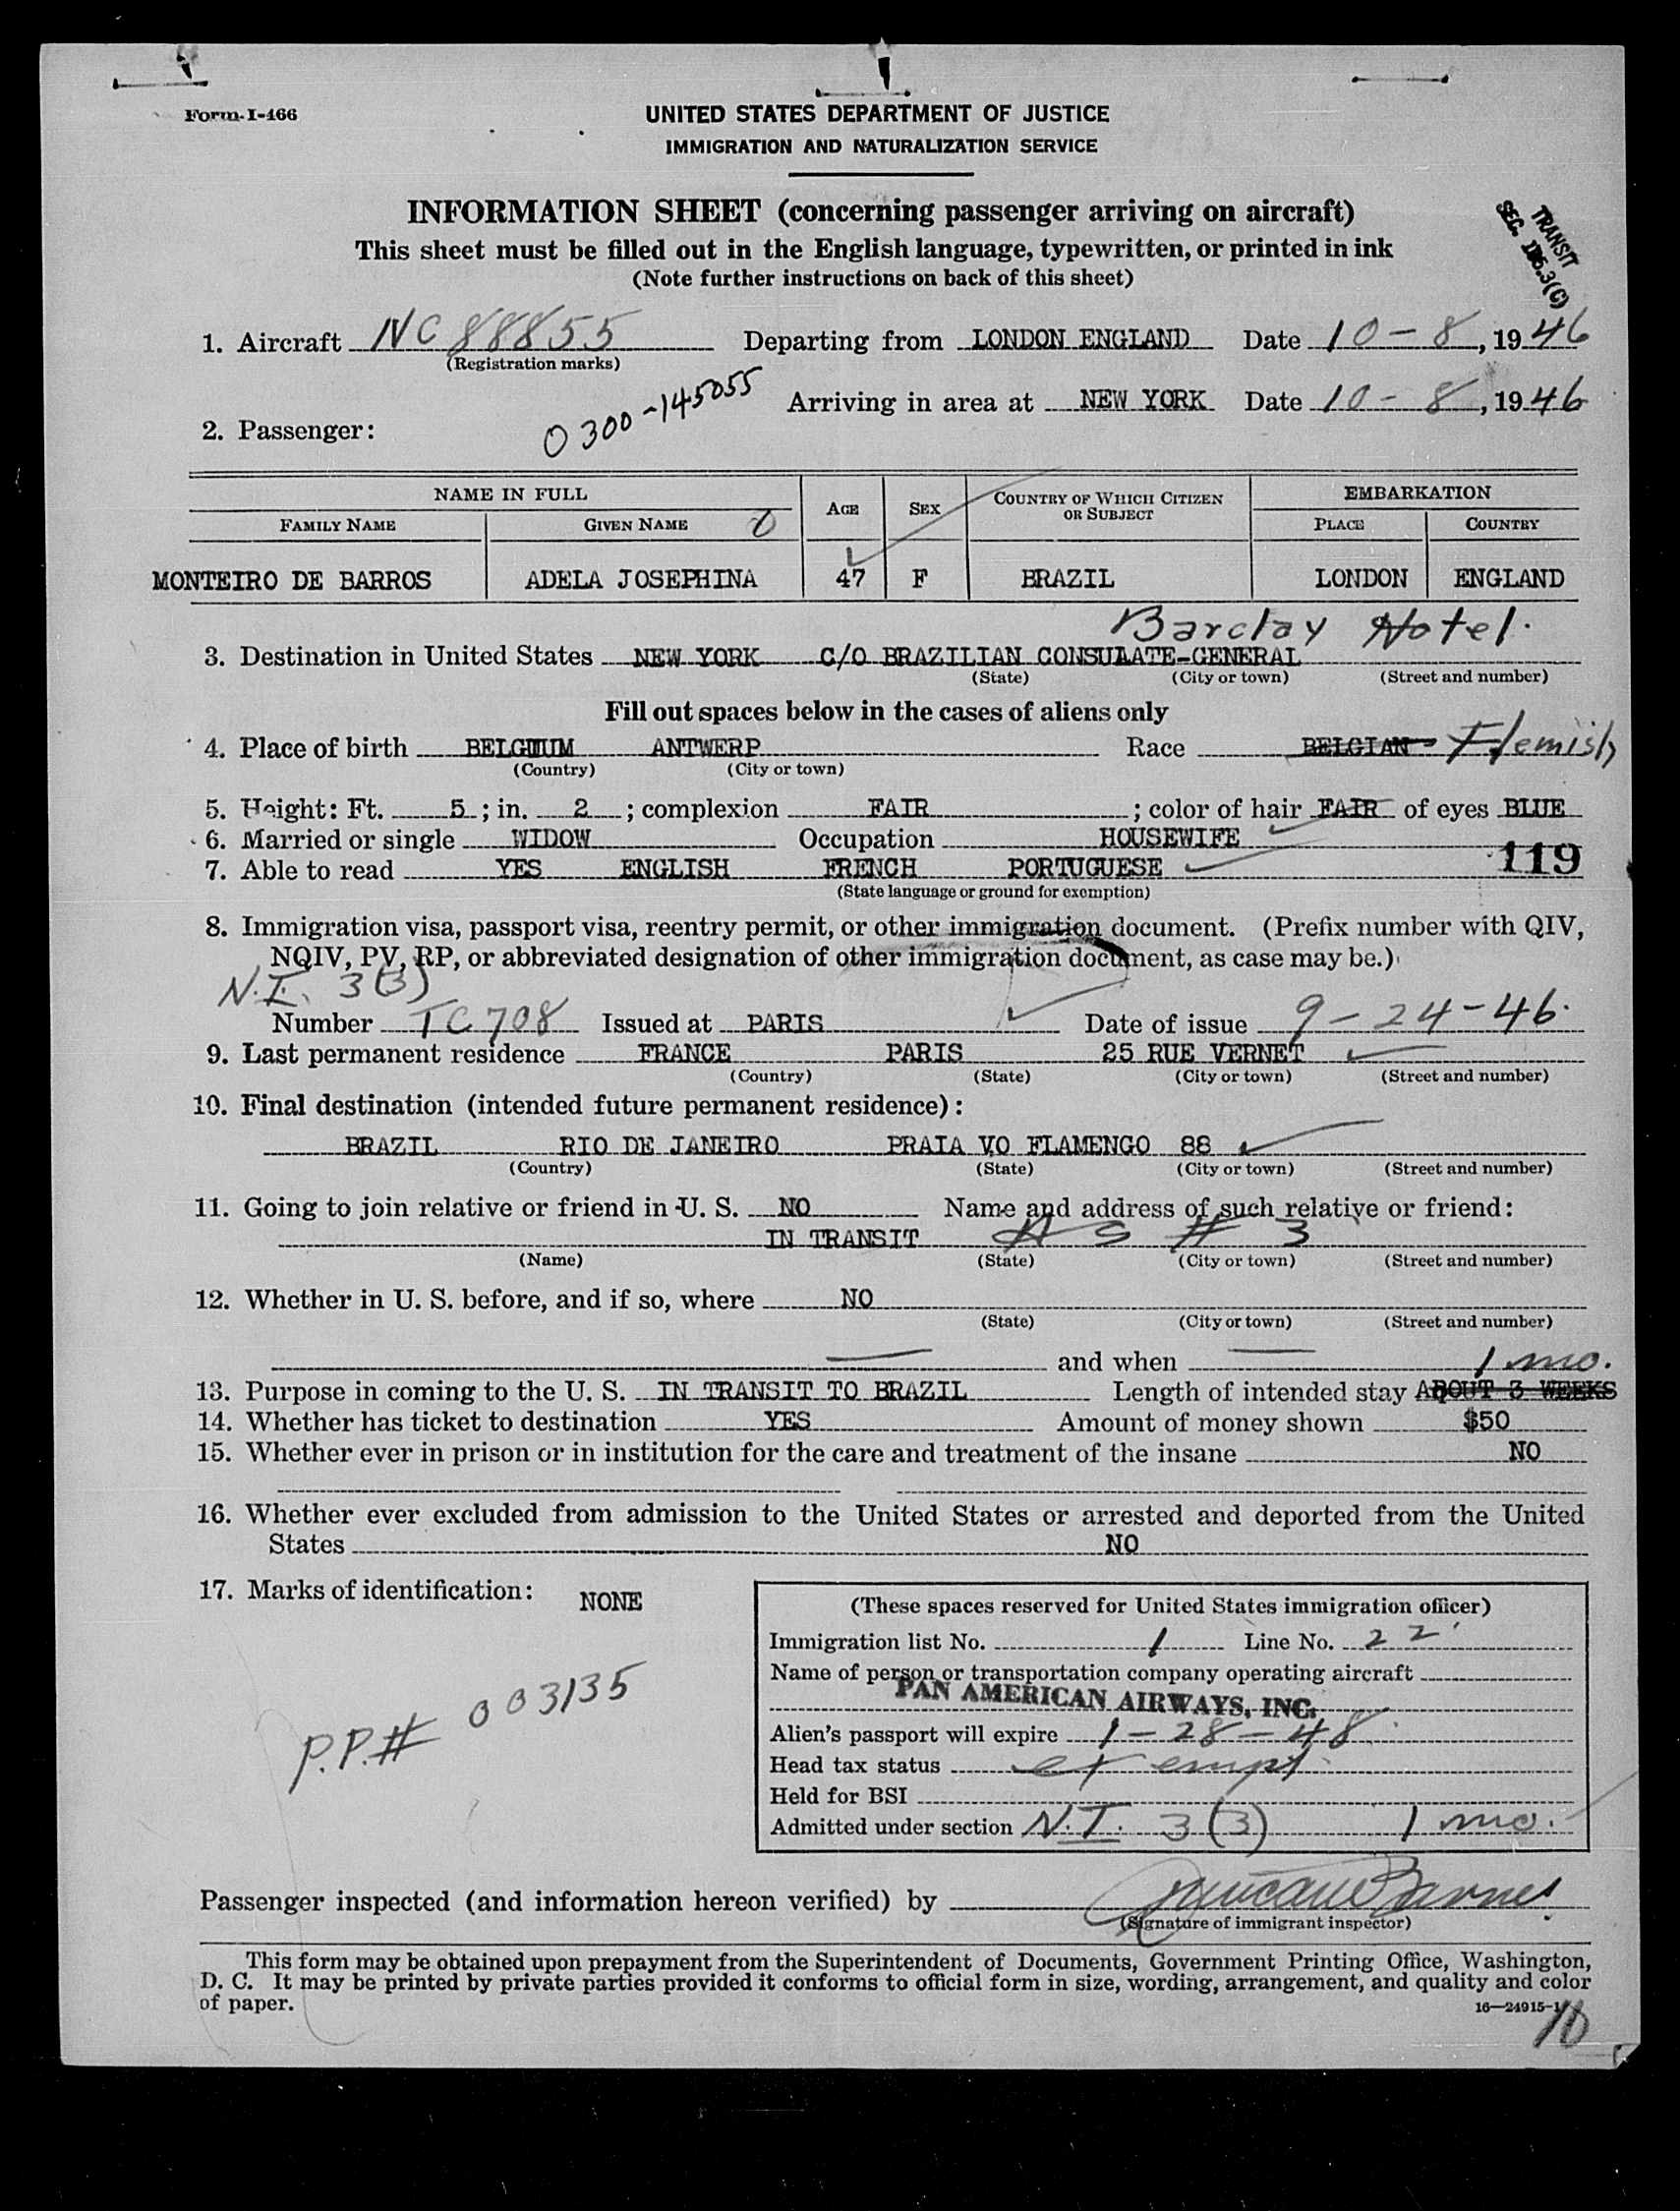 Form I-466
UNITED STATES DEPARTMENT OF JUSTICE
IMMIGRATION AND NATURALIZATION SERVICE
INFORMATION SHEET (concerning passenger arriving on aircraft)
This sheet must be filled out in the English language, typewritten, or printed in ink
(Note further instructions on back of this sheet)
TRANSIT
SEC. 3(C)
1. Aircraft NC 88855 Departing from LONDON ENGLAND Date 10-8, 1946
(Registration marks)
0300-145055
Arriving in area at NEW YORK Date 10-8, 1946
2. Passenger:
NAME IN FULL AGE SEX COUNTRY OF WHICH CITIZEN OR SUBJECT EMBARKATION
FAMILY NAME GIVEN NAME PLACE COUNTRY
MONTEIRO DE BARROS ADELA JOSEPHINA 47 F BRAZIL LONDON ENGLAND
Barclay Hotel.
3. Destination in United States NEW YORK C/O BRAZILIAN CONSULATE-GENERAL
(State) (City or town) (Street and number)
Fill out spaces below in the cases of aliens only
4. Place of birth BELGIUM ANTWERP Race BELGIAN - Flemish
(Country) (City or town)
5. Height: Ft. 5; in. 2; complexion FAIR; color of hair FAIR of eyes BLUE
6. Married or single WIDOW Occupation HOUSEWIFE
7. Able to read YES ENGLISH FRENCH PORTUGUESE 119
(State language or ground for exemption)
8. Immigration visa, passport visa, reentry permit, or other immigration document. (Prefix number with QIV,
NQIV, PV, RP, or abbreviated designation of other immigration document, as case may be.)
N.I. 3(3)
Number TC 708 Issued at PARIS Date of issue 9-24-46.
9. Last permanent residence FRANCE PARIS 25 RUE VERNET
(Country) (State) (City or town) (Street and number)
10. Final destination (intended future permanent residence):
BRAZIL RIO DE JANEIRO PRAIA VO FLAMENGO 88
(Country) (State) (City or town) (Street and number)
11. Going to join relative or friend in U. S. NO Name and address of such relative or friend:
IN TRANSIT AS # 3
(Name) (State) (City or town) (Street and number)
12. Whether in U. S. before, and if so, where NO
(State) (City or town) (Street and number)
and when
1 mo.
13. Purpose in coming to the U. S. IN TRANSIT TO BRAZIL Length of intended stay ABOUT 3 WEEKS
14. Whether has ticket to destination YES Amount of money shown $50
15. Whether ever in prison or in institution for the care and treatment of the insane NO
16. Whether ever excluded from admission to the United States or arrested and deported from the United
States NO
17. Marks of identification: NONE
P.P.# 003135
(These spaces reserved for United States immigration officer)
Immigration list No. 1 Line No. 22
Name of person or transportation company operating aircraft
PAN AMERICAN AIRWAYS, INC.
Alien's passport will expire 1-28-48
Head tax status exempt
Held for BSI
Admitted under section N.I. 3(3) 1 mo.
Passenger inspected (and information hereon verified) by Duncan Barnes
(Signature of immigrant inspector)
This form may be obtained upon prepayment from the Superintendent of Documents, Government Printing Office, Washington,
D. C. It may be printed by private parties provided it conforms to official form in size, wording, arrangement, and quality and color
of paper.
16—24915-1
10